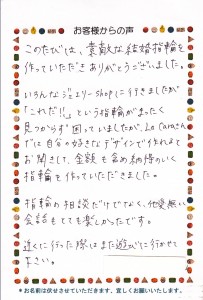 お客様からの声
このたびは、素敵な結婚指輪を
作っていただき ありがとうございました。
いろんなジュエリーshopに行きましたが
「これだ!!」という指輪がまったく
見つからず困っていましたが、La Caraさん
では自分の好きなデザインで作れますと
お聞きして、金額も含め納得のいく
指輪を作っていただきました。
指輪の相談だけでなく、他愛無い
会話もとても楽しかったです。
近くに行った際はまた遊びに行かせて
下さい。
*お名前は伏せさせていただきます。宜しくお願いいたします。